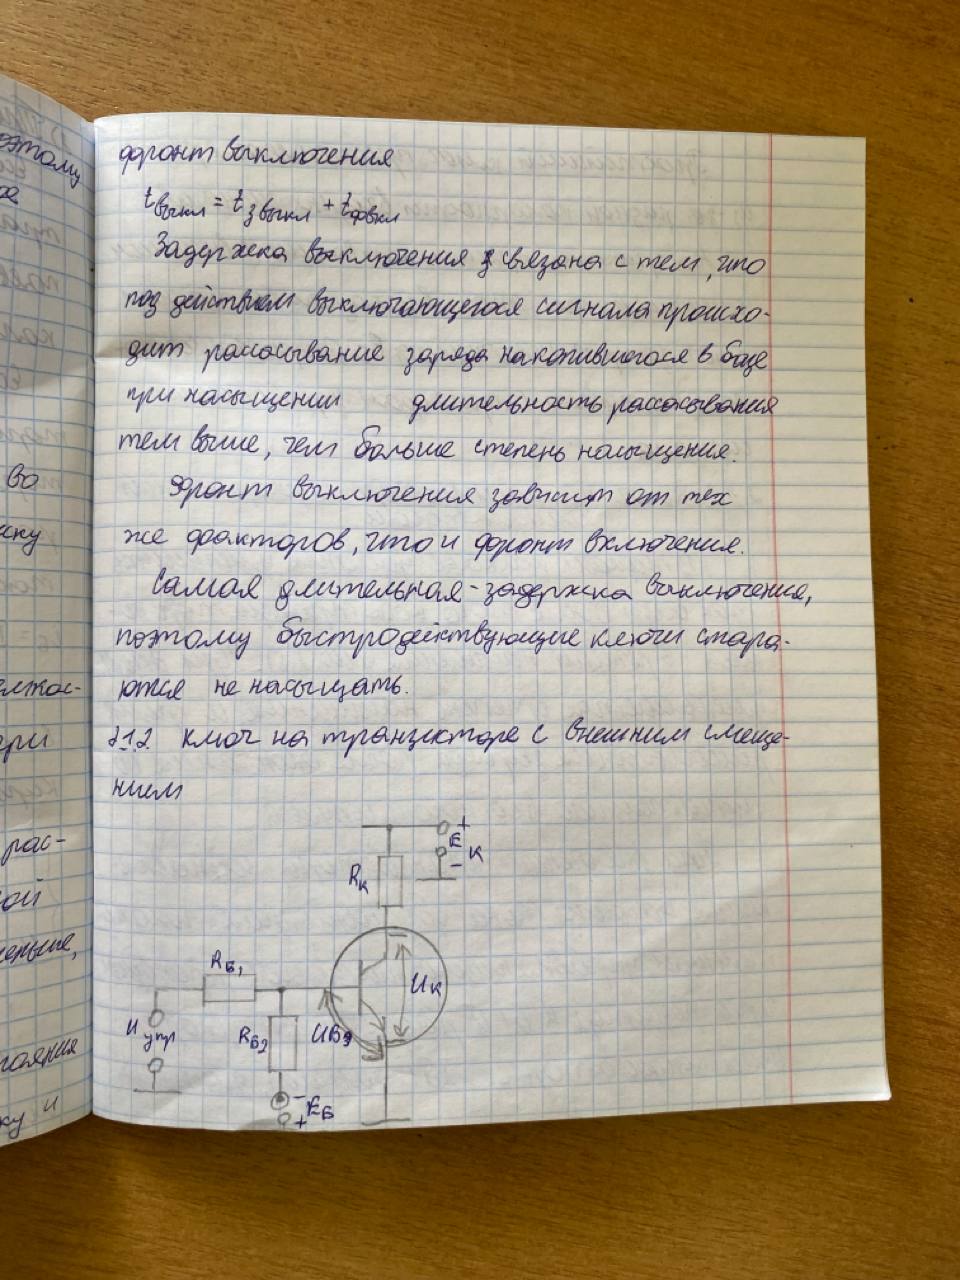 фронт выключения
tвыкл = tз выкл + tфвкл
Задержка выключения связана с тем, что
под действием выключающегося сигнала происхо-
дит рассасывание заряда накопившегося в базе
при насыщении длительность рассасывания
тем выше, чем больше степень насыщения.
Фронт выключения зависит от тех
же факторов, что и фронт включения.
Самая длительная - задержка выключения,
поэтому быстродействующие ключи стара-
ются не насыщать.
2.1.2 Ключ на транзисторе с внешним смеще-
нием
+
Eк
-
Rк
Rб1
Uк
Uупр
Rб2
UBЭ
-
Eб
+
поэтому
во
ску
ери
рас-
ой
меньше,
тояния
ку и